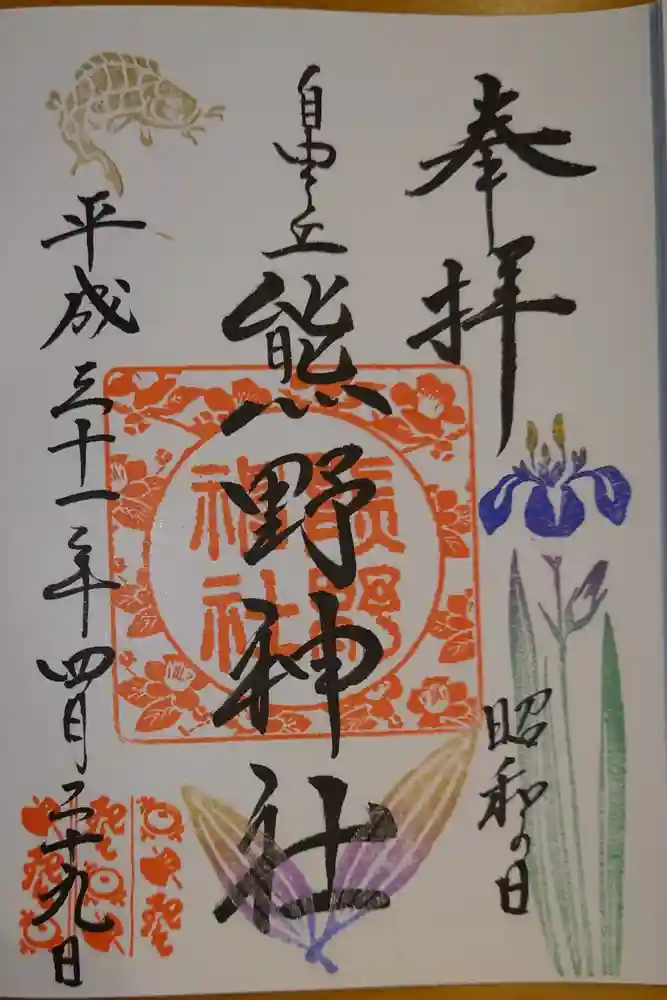 奉拝
昭和の日
自由が丘
熊野神社
熊野神社
平成三十一年四月二十九日